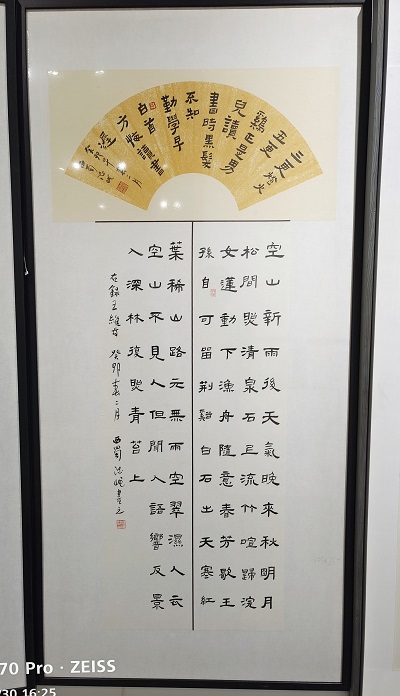 三更燈火
五更
鷄正是男
兒讀
書時黑髮
不知
勤學早
白首
方悔讀書
遲
空山新雨後天氣晚來秋明月
松間照清泉石上流竹喧歸浣
女蓮動下漁舟隨意春芳歇王
孫自可留荊谿白石出天寒紅
葉稀山路元無雨空翠濕人衣
空山不見人但聞人語響反景
入深林復照青苔上
右錄王維詩 癸卯春二月 西蜀
70 Pro · ZEISS
/30 16:25